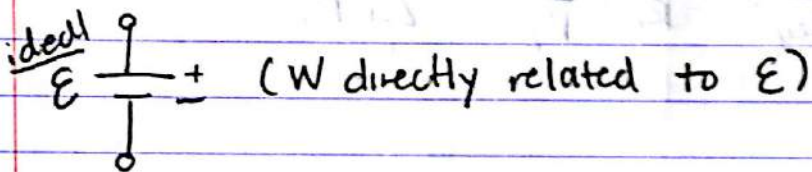 ideal
ε + - (W directly related to ε)